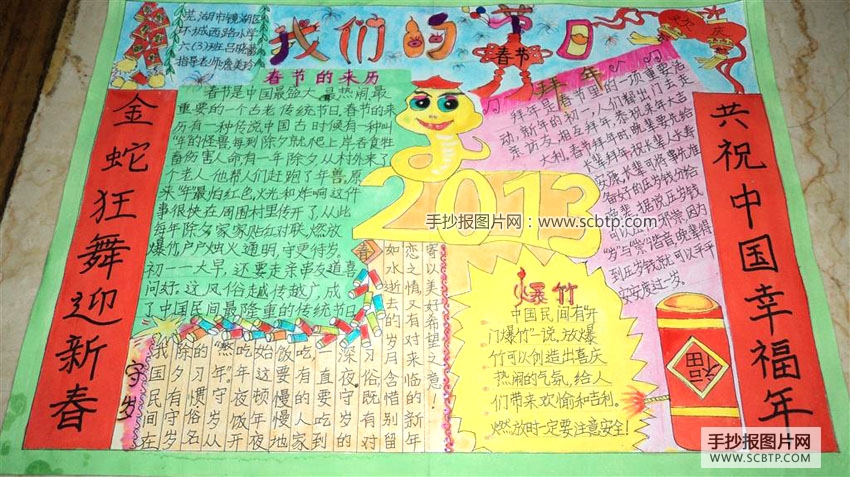 芜湖市镜湖区
环城西路小学
六(3)班吕
指导老师:詹美玲
我们的节日
春节
欢庆
金蛇狂舞迎新春
春节的来历
春节是中国最盛大、最热闹、最
重要的一个古老传统节日,春节的来
历有一种传说,中国古时候有一种叫
“年”的怪兽,每到除夕就爬上岸吞食牲
畜伤害人命,有一年除夕,从村外来了
个老人,他帮人们赶跑了年兽,原
来“年”最怕红色,火光和炸响,这件
事很快在周围村里传开了,从此
每年除夕家家贴红对联、燃放
爆竹,户户烛火通明,守更待岁。
初一一大早,还要走亲串友道喜
问好,这风俗越传越广,成
了中国民间最隆重的传统节日
2013
手抄报图片网:www.scbtp.com
拜年
拜年是春节里的一项重要活
动,新年的初一,人们都出门去走
亲访友,相互拜年,恭祝来年大吉
大利。春节拜年时,晚辈要先给
长辈拜年,祝长辈人长寿
安康,长辈可将事先准
备好的压岁钱分给
晚辈,据说压岁钱
可以压住邪祟,因为
“岁”与“祟”谐音,晚辈得
到压岁钱就可以平平
安安度过一岁。
共祝中国幸福年
守岁
我国民间在
除夕有守岁
的习惯,俗名
“熬年”。守岁从
吃年夜饭开
始,这顿年夜
饭要慢慢地
吃,有的人家
一直要吃到
深夜。守岁的
习俗,既有对
春
如水逝去的岁月含惜别留
恋之情,又有对来临的新年
寄以美好希望之意!
爆竹
中国民间有“开
门爆竹”一说。放爆
竹可以创造出喜庆
热闹的气氛,给人
们带来欢愉和吉利。
燃放时一定要注意安全!
福
手抄报图片网
WWW.SCBTP.COM